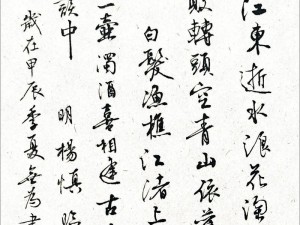 江東逝水浪花淘
敗轉頭空青山依
白髮漁樵江渚上
一壺濁酒喜相逢古
談中 明楊慎臨
歲在甲辰季夏無為書